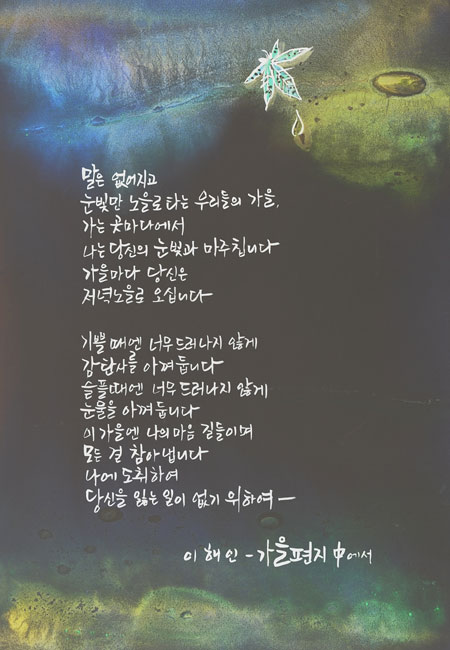 말은 없어지고
눈빛만 노을로 타는 우리들의 가을,
가는 곳마다에서
나는 당신의 눈빛과 마주칩니다
가을마다 당신은
저녁노을로 오십니다
기쁠 때엔 너무 드러나지 않게
감탄사를 아껴둡니다
슬플 때엔 너무 드러나지 않게
눈물을 아껴둡니다
이 가을엔 나의 마음 길들이며
모든 걸 참아냅니다
나에 도취하여
당신을 잃는 일이 없기 위하여 —
이해인 - 가을편지 中에서